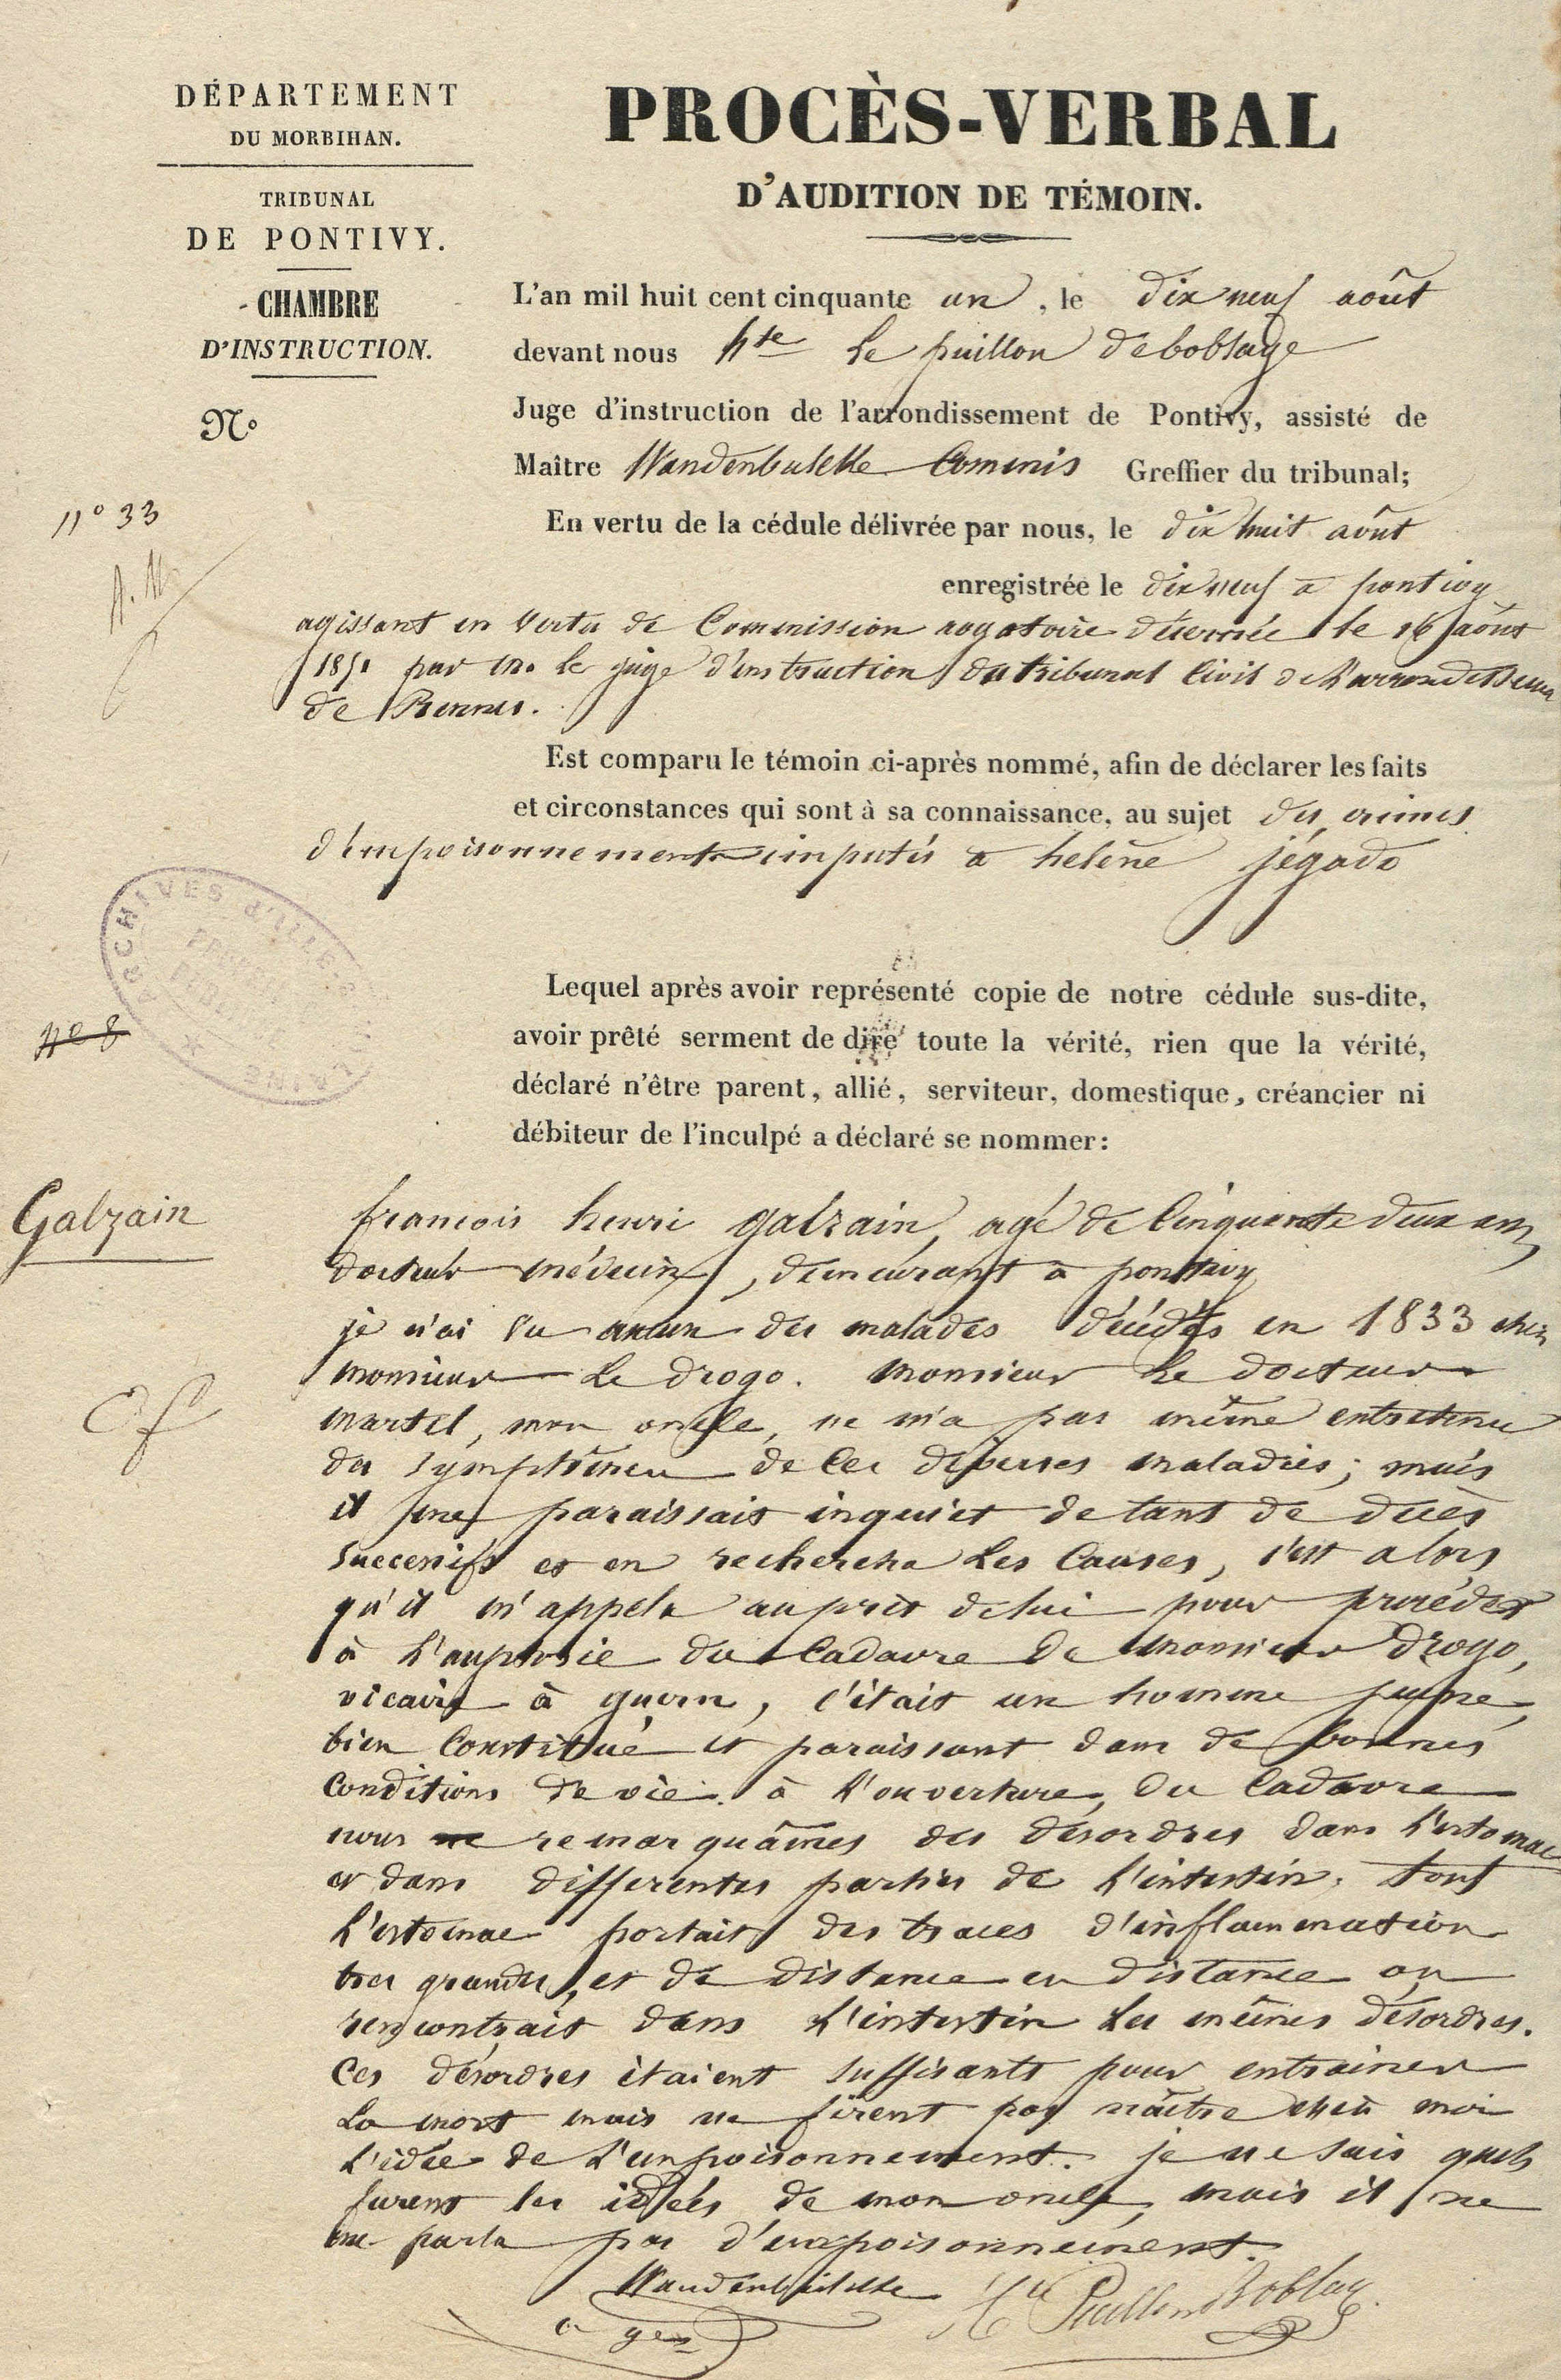 DÉPARTEMENT
DU MORBIHAN.
TRIBUNAL
DE PONTIVY.
CHAMBRE
D'INSTRUCTION.
N°
n° 33
PROCÈS-VERBAL
D'AUDITION DE TÉMOIN.
L'an mil huit cent cinquante un, le dix neuf août
devant nous hte Le puillon de boblaye
Juge d'instruction de l'arrondissement de Pontivy, assisté de
Maître Commis Greffier du tribunal;
En vertu de la cédule délivrée par nous, le dix huit août
enregistrée le dix neuf a pontivy
agissant en vertu de Commission rogatoire décernée le 16 août
1851 par m. le juge d'instruction du tribunal Civil de l'arrondissem
de Rennes.
Est comparu le témoin ci-après nommé, afin de déclarer les faits
et circonstances qui sont à sa connaissance, au sujet des crimes
d'empoisonnements imputés a helène jégado
ARCHIVES d'ILLE-&-VILAINE
Lequel après avoir représenté copie de notre cédule sus-dite,
n° 8
avoir prêté serment de dire toute la vérité, rien que la vérité,
déclaré n'être parent, allié, serviteur, domestique, créancier ni
débiteur de l'inculpé a déclaré se nommer:
Galzain
francois henri galzain, agé de Cinquante deux ans
docteur médecin, demeurant a pontivy
je n'ai vu aucun des malades décédés en 1833 chez
monsieur Le drogo. monsieur Le docteur
martel, mon oncle, ne m'a pas même entretenu
des symptômes de Ces diverses maladies; mais
il me paraissait inquiet de tant de décès
successifs et en rechercha Les Causes, c'est alors
qu'il m'appela auprès de lui pour procéder
à l'aupsie du Cadavre de monsieur Drogo,
vicaire à guern, c'était un homme jeune,
bien Constitué et paraissant dans de bonnes
Conditions de vie. à l'ouverture du Cadavre
nous ne remarquâmes des désordres dans l'estomac
et dans differentes parties de l'intestin. tout
l'estomac portait des traces d'inflammation
tres grandes, et de distance en distance on
rencontrait dans l'intestin les mêmes désordres.
Ces désordres étaient suffisants pour entrainer
La mort mais ne firent pas naître chez moi
l'idée de l'empoisonnement. je ne sais quels
furent les idées de mon oncle, mais il ne
me parla pas d'empoisonnement.
hte Puillon Boblaye
c ger